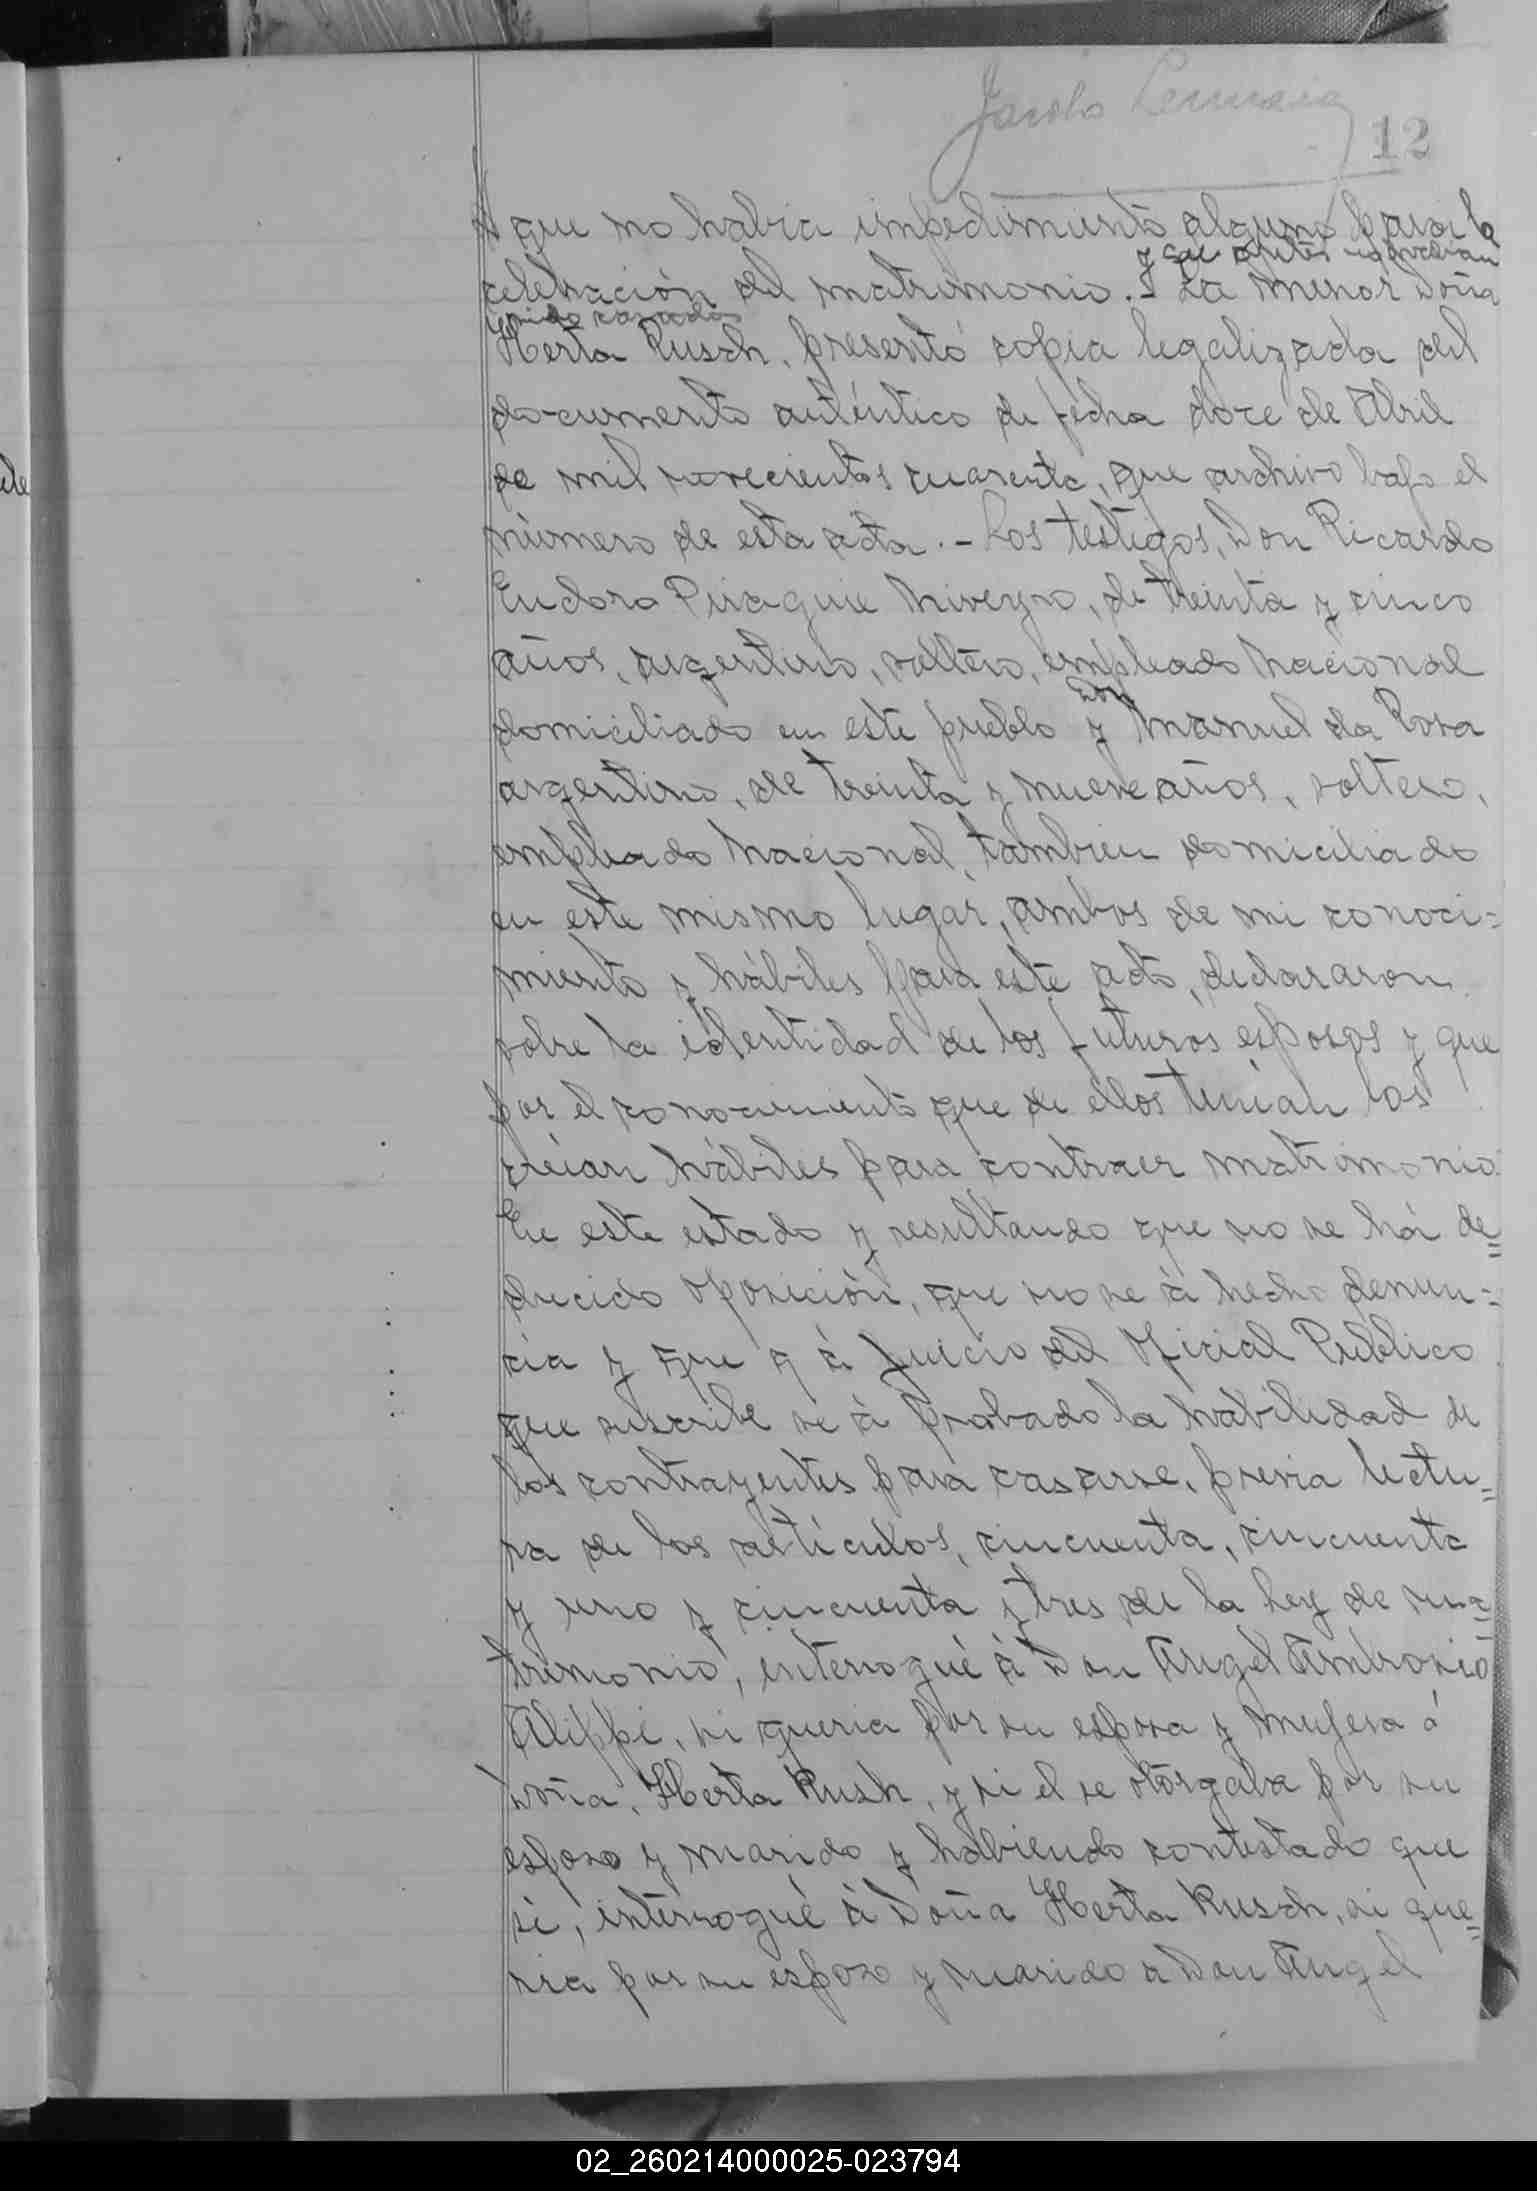 12
que no habia impedimiento alguno para la
y que antes no habian
celebración del matrimonio.- La menor Doña
sido casados
Herta Rusch, presentó copia legalizada del
documento auténtico de fecha doce de Abril
de mil novecientos cuarenta, que archivo bajo el
número de esta acta.- Los testigos, Don Ricardo
Eudoro, de treinta y cinco
años, argentino, soltero, empleado Nacional
Don
domiciliado en este pueblo y Manuel da Rosa
argentino, de treinta y nueve años, soltero,
empleado Nacional, tambien domiciliado
en este mismo lugar, ambos de mi conoci=
miento y hábiles para este acto, declararon
sobre la identidad de los futuros esposos y que
por el conocimiento que de ellos tenian los
creian hábiles para contraer matrimonio.
En este estado y resultando que no se há de=
ducido oposición, que no se á hecho denun=
cia y que á juicio del Oficial Publico
que suscribe se á probado la habilidad de
los contrayentes para casarse, previa lectu=
ra de los artículos, cincuenta, cincuenta
y uno y cincuenta y tres de la Ley de ma=
trimonio, interrogué á Don Angel Ambrosio
Alippi, si queria por su esposa y mujera á
Doña, Herta Rush, y si el se otórgaba por su
esposo y marido y habiendo contestado que
si, interrogué á Doña Herta Rusch, si que=
ria por su esposo y marido a Don Angel
02_260214000025-023794